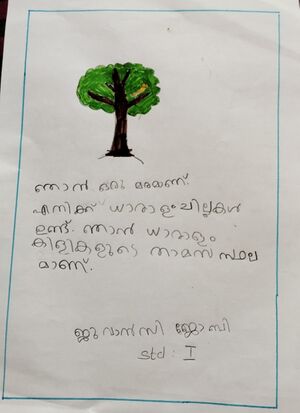 ഞാൻ ഒരു മരമാണ്.
എനിക്ക് ധാരാളം ചില്ലകൾ
ഉണ്ട്. ഞാൻ ധാരാളം
കിളികളുടെ താമസ സ്ഥല
മാണ്.
ജുവാൻസി ജോബി
std : I